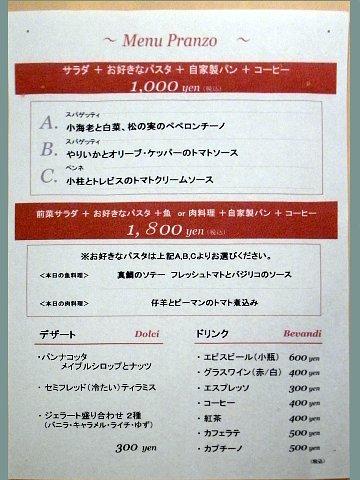 ～ Menu Pranzo ～
サラダ + お好きなパスタ + 自家製パン + コーヒー
1,000 yen (税込)
スパゲッティ
A. 小海老と白菜、松の実のペペロンチーノ
スパゲッティ
B. やりいかとオリーブ・ケッパーのトマトソース
ペンネ
C. 小柱とトレビスのトマトクリームソース
前菜サラダ + お好きなパスタ +魚 or 肉料理 +自家製パン + コーヒー
1,800 yen (税込)
※お好きなパスタは上記A,B,Cよりお選びください。
<本日の魚料理> 真鯛のソテー フレッシュトマトとバジリコのソース
<本日の肉料理> 仔羊とピーマンのトマト煮込み
デザート Dolci
・パンナコッタ
メイプルシロップとナッツ
・セミフレッド(冷たい)ティラミス
・ジェラート盛り合わせ 2種
(バニラ・キャラメル・ライチ・ゆず)
300 yen
ドリンク Bevandi
・エビスビール(小瓶) 600 yen
・グラスワイン(赤/白) 400 yen
・エスプレッソ 300 yen
・コーヒー 400 yen
・紅茶 400 yen
・カフェラテ 500 yen
・カプチーノ 500 yen
(税込)